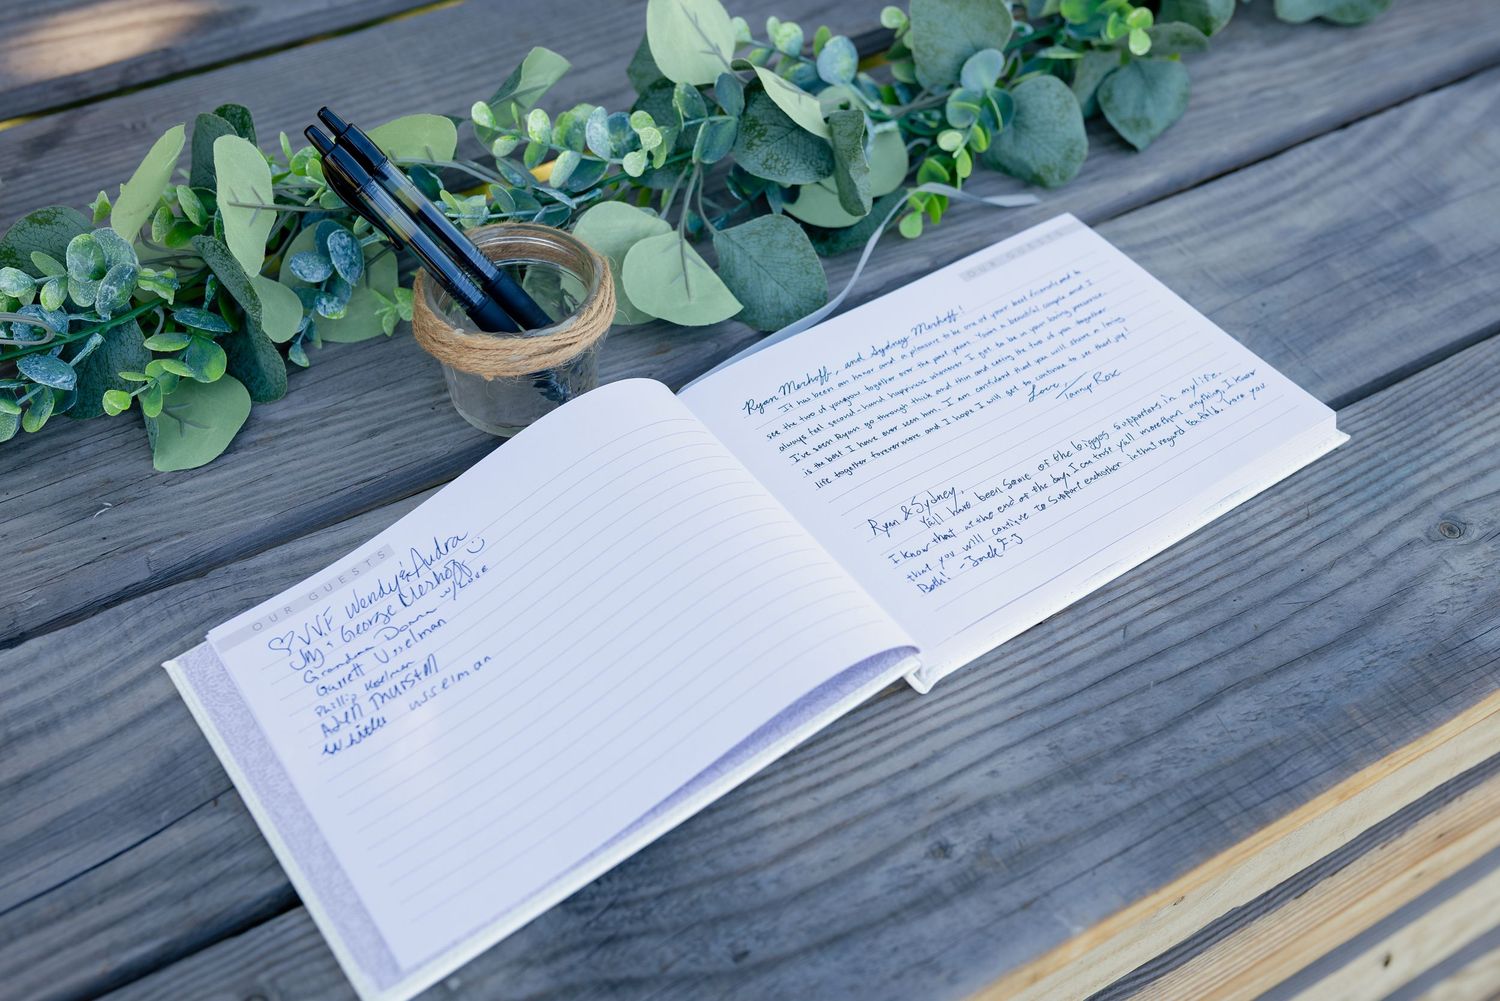 OUR GUESTS
♡ VVF Wendy & Audra
Jay & George Merhoff :)
Grandma Donna w/ Love
Garrett Usselman
Phillip
Aden Thurston
usselman
OUR GUESTS
Ryan Merhoff, and Sydney Merhoff!
It has been an honor and a pleasure to be one of your best friends and to
see the two of you grow together over the past years. Youre a beautiful couple and I
always feel second-hand happiness whenever I get to be in your loving presence.
I've seen Ryan go through thick and thin and seeing the two of you together
is the best I have ever seen him. I am confident that you will share a loving
life together forevermore and I hope I will get to continue to see that joy!
Love,
Rose
Ryan & Sydney,
Y'all have been some of the biggest supporters in my life.
I know that at the end of the day, I can trust y'all more than anything. I know
that you will continue to support eachother in that regard too. Love you
Both!